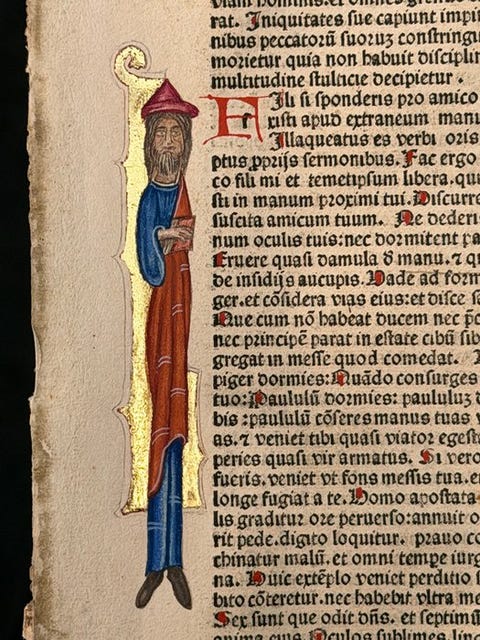 rat. Iniquitates sue capiunt impi
nibus peccatorū suoruz constringi
morietur quia non habuit disciplin
multitudine stulticie decipietur.
FIli si sponderis pro amico
xisti apud extraneum manu
Illaqueatus es verbi oris
ptus ppriis sermonibus. Fac ergo
co fili mi et temetipsum libera. qui
sti in manum proximi tui. Discurre
suscita amicum tuum. Ne dederi
num oculis tuis: nec dormitent pa
Eruere quasi damula d manu. ⁊ qu
de insidijs aucupis. Vade ad form
ger. et cōsidera vias eius: et disce s
Que cum nō habeat ducem nec p̄c
nec principē parat in estate cibū sib
gregat in messe quod comedat.
piger dormies: Quādo consurges
tuo: Paululū dormies: paululuz d
bis: paululū cōseres manus tuas v
as. ⁊ veniet tibi quasi viator egest
peries quasi vir armatus. Si vero
fueris. veniet vt fōns messis tua. e
longe fugiat a te. Homo apostata
lis graditur ore peruerso: annuit o
rit pede. digito loquitur. prauo co
chinatur malū. et omni tempe iurg
na. Huic extēplo veniet perditio s
bito cōteretur. nec habebit vltra me
Sex sunt que odit dn̄s. et septimū
anima eius. Oculos sublimes. lin